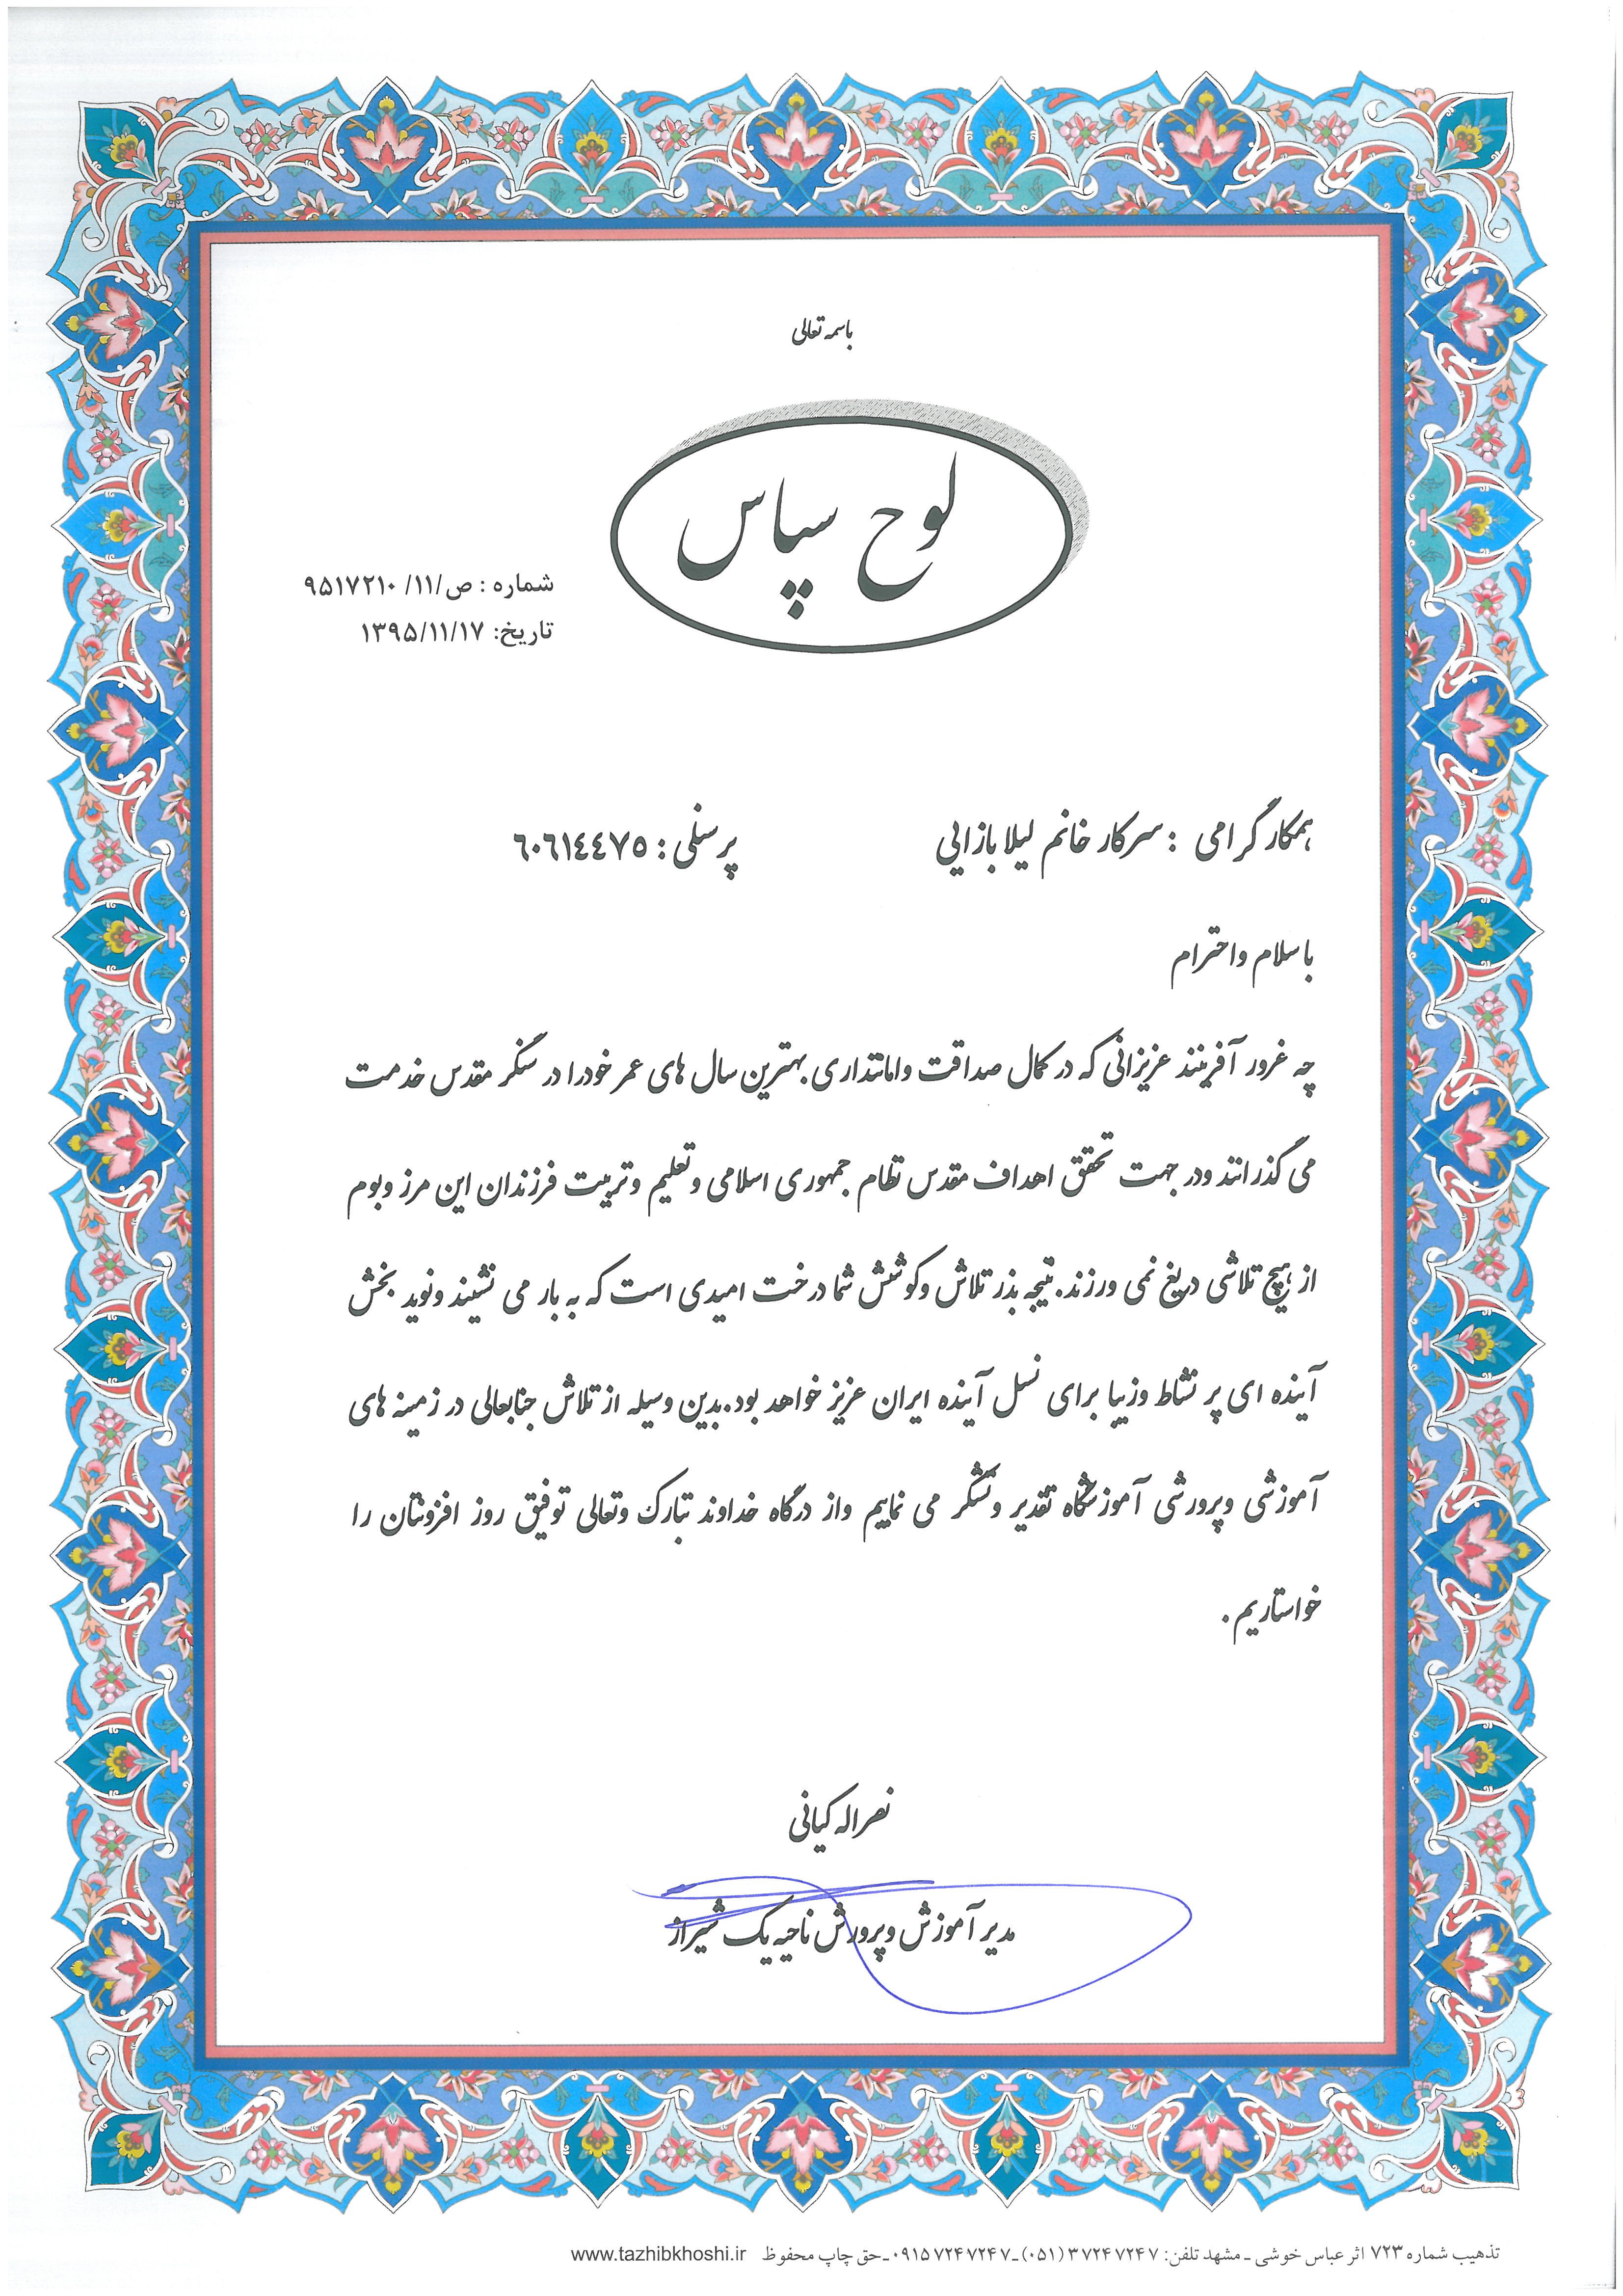 باسمه تعالی
لوح سپاس
شماره : ص/۱۱/ ۹۵۱۷۲۱۰
تاریخ: ۱۳۹۵/۱۱/۱۷
همکار گرامی : سرکار خانم لیلا بازایی پرسنلی : ٦٠٦١٤٤٧٥
با سلام واحترام
چه غرور آفرینند عزیزانی که در کمال صداقت وامانتداری بهترین سال های عمر خودرا در سنگر مقدس خدمت
می گذرانند ودر جهت تحقق اهداف مقدس نظام جمهوری اسلامی وتعلیم وتربیت فرزندان این مرز وبوم
از هیچ تلاشی دریغ نمی ورزند. نتیجه بذر تلاش وکوشش شما درخت امیدی است که به بار می نشیند ونوید بخش
آینده ای پر نشاط وزیبا برای نسل آینده ایران عزیز خواهد بود.بدین وسیله از تلاش جنابعالی در زمینه های
آموزشی وپرورشی آموزشگاه تقدیر وتشکر می نماییم واز درگاه خداوند تبارک وتعالی توفیق روز افزونتان را
خواستاریم .
نصراله کیانی
مدیر آموزش وپرورش ناحیه یک شیراز
تذهیب شماره ۷۲۳ اثر عباس خوشی ـ مشهد تلفن: ۳۷۲۴۷۲۴۷ (۰۵۱) ـ ۰۹۱۵۷۲۴۷۲۴۷ ـ حق چاپ محفوظ www.tazhibkhoshi.ir